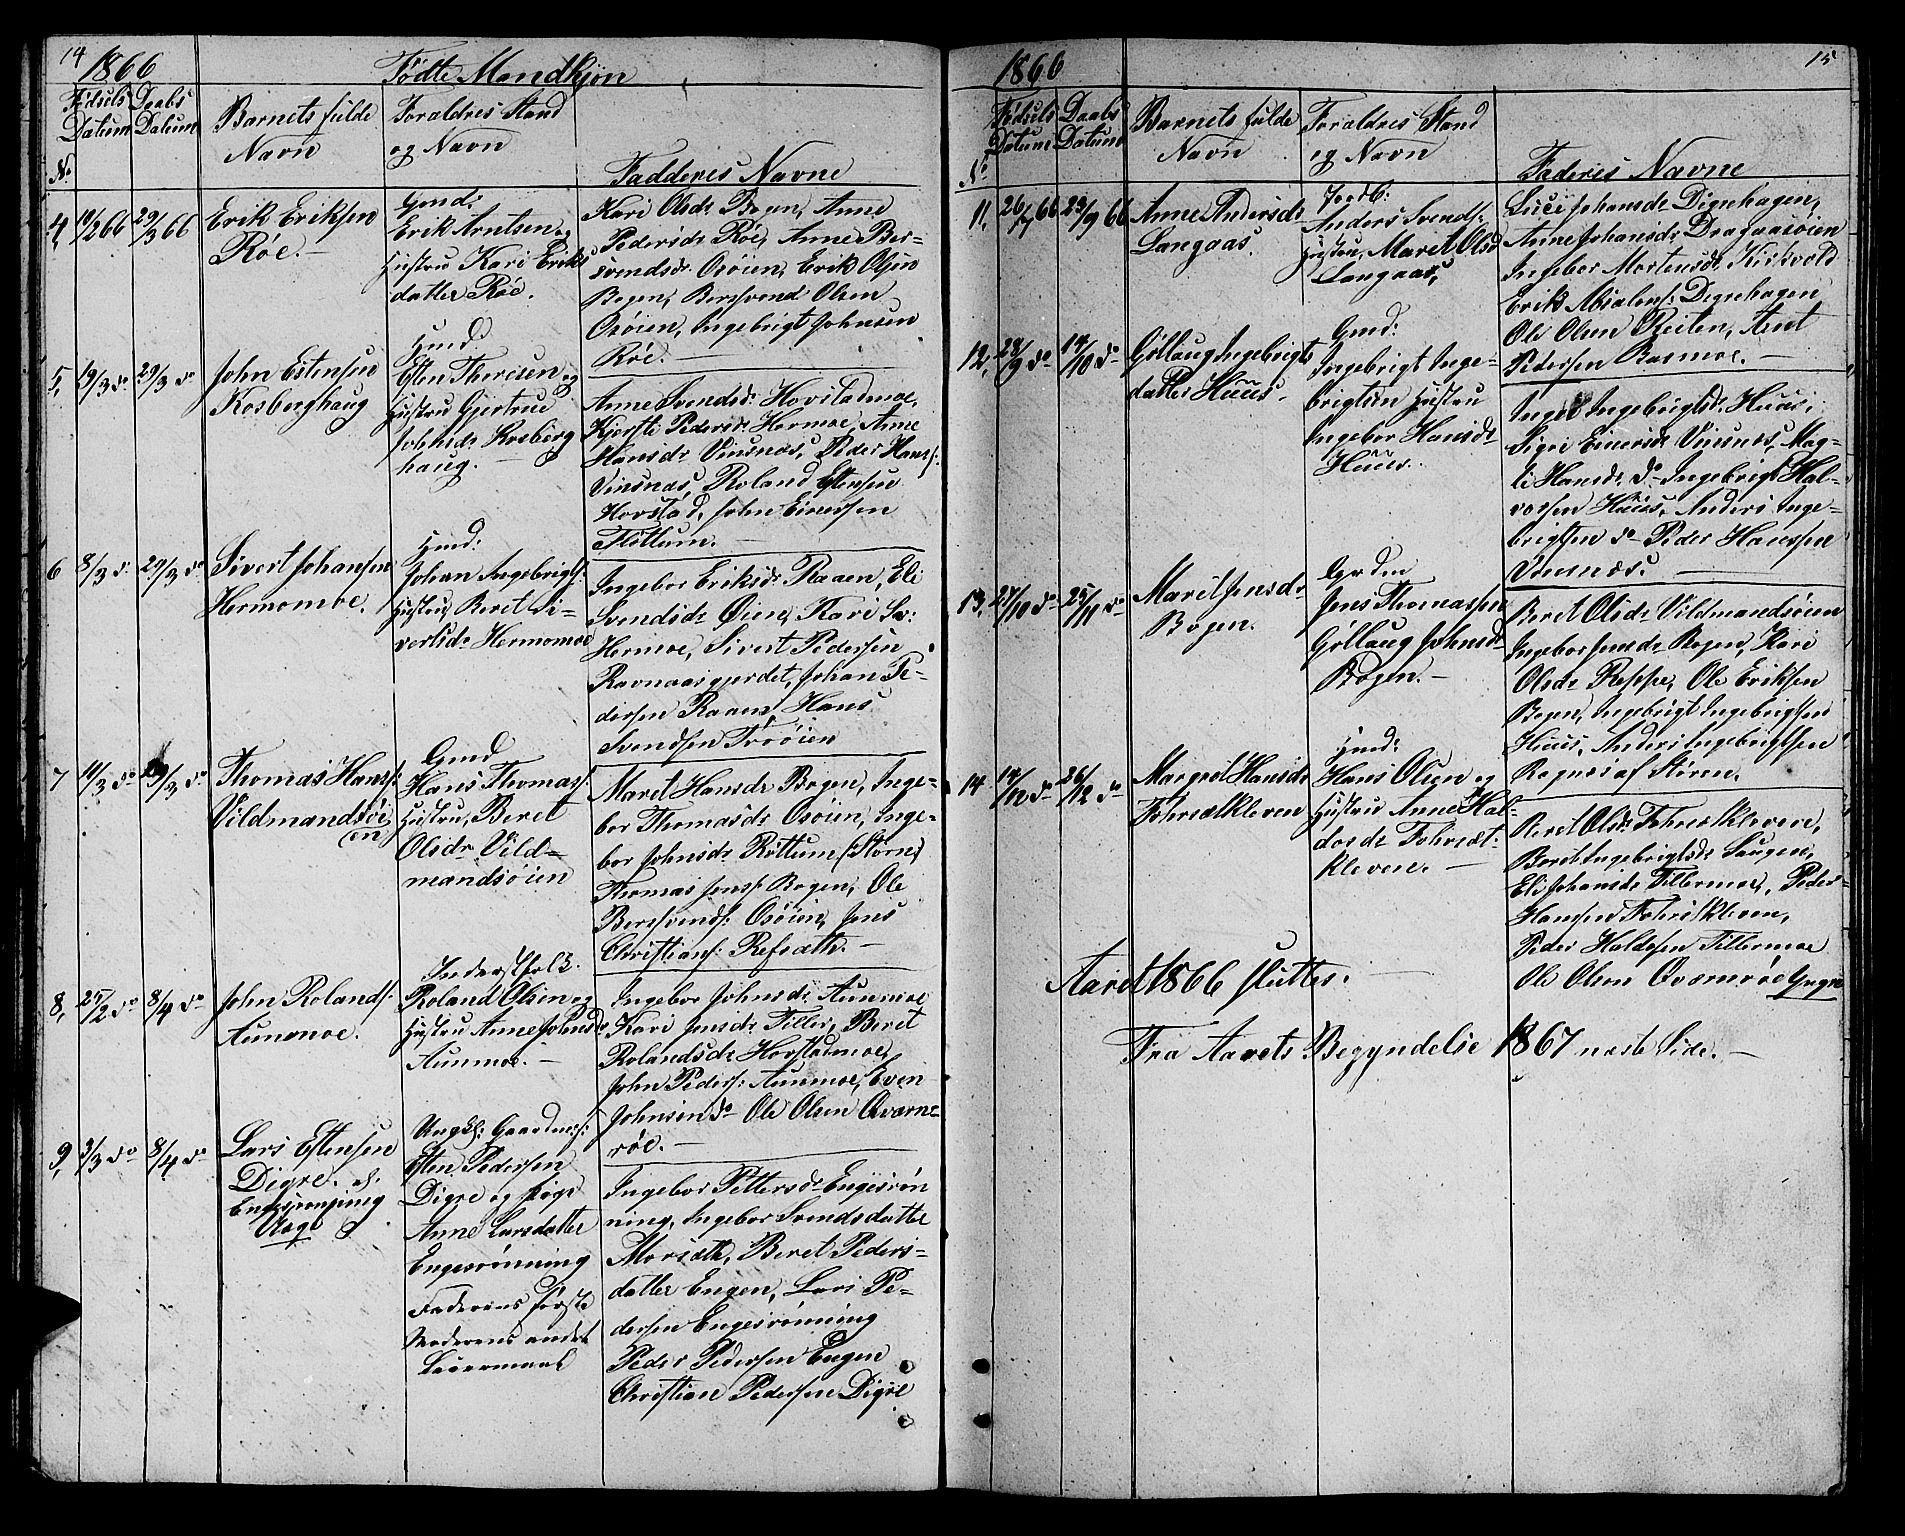 14
1866
Fødte Mandkjøn
Fødsels Datum
Daabs Datum
Barnets fulde Navn
Foraldres Stand og Navn
Fadderes Navne
No
4, 10/2 66 29/3 66
Erik Eriksen
Röe.
Gmd:
Erik Arntsen og
Hustru Kari Eriks
datter Röe.
Kari Olsdr Bogen, Anne
Pedersdr Röe, Anne Ber-
svendsdr Osöien, Erik Olsen
Bogen, Bersvend Olsen
Osöien, Ingebrigt Johnsen
Röe.
5, 19/3 do 29/3 do
John Estensen
Kosberghaug
Hmd
Esten Theresen og
Hustru Gjertrue
Johnsdr Kosberg
haug.
Anne Svendsdr Hovstadmoe,
Kjersti Pedersdr Hermoe, Anne
Hansdr Vinsnæs, Peder Hans:
Vinsnæs, Roland Estensen
Hovstad, John Einersen
Flöttum.
6 8/3 do 29/3 do
Sivert Johansen
Hermomoe.
Hmd:
Johan Ingebrigts:
Hustru, Beret Si-
vertsdr Hermomoe
Ingebor Eriksdr Raaen, Eli
Svendsdr Öien, Kari
Hermoe, Sivert Pedersen
Ravnaasgjerdet, Johan Pe-
dersen Raaen, Hans
Svendsen Trööien
7 11/3 do 29/3 do
Thomas Hans:
Vildmandsöi
en
Gmd
Hans Thomas:
Hustru, Beret
Olsdr Vild-
mandsöien
Maret Hansdr Bogen, Inge-
bor Thomasdr Osöien, Inge-
bor Johnsdr Röttum (Störn)
Thomas Jens: Bogen, Ole
Bersvends: Osöien, Jens
Christians: Refsæth.
8, 25/2 do 8/4 do
John Rolands:
Aunmoe.
Inderstfolk.
Roland Olsen og
Hustru Anne Johnsdr
Aunmoe.
Ingebor Johnsdr Aunmoe
Kari Jensdr Tiller, Beret
Rolandsdr Hovstadmoe,
John Peders: Aunmoe, Even
Johnsen do Ole Olsen Qværn-
röe.
9, 3/3 do 8/4 do
Lars Estensen
Digre.
Engesrønning
Uægte
Ungk: Gaardm:
Esten Pedersen
Digre og Pige
Anne Larsdatter
Engesrönning
Faderens förste
Moderens andet
Leiermaal
Ingebor Pettersdr Engesrön
ning, Ingebor Svendsdatter
Morsæth, Beret Peders-
datter Engen, Lars Pe-
dersen Engesrönning
Peder Pedersen Engen
Christian Pedersen Digre
15
1866
Fødsels Datum
Daabs Datum
Barnets fulde Navn
Foraldres Stand og Navn
Faderes Navne
No
11, 26/7 66 23/9 66
Anne Andersdr
Langaas.
Jordb:
Anders Svends:
Hustru, Maret Olsd
Langaas,
Luci Johansdr Digrehagen,
Anne Johansdr Dragaasöien
Ingebor Mortensdr Kirkvold
Erik Absalons: Digrehagen
Ole Olsen Reiten, Arnt
Pedersen Basmoe.
12, 28/9 do 14/10 do
Göllaug Ingebrigts
datter Huus.
Gmd:
Ingebrigt Inge-
brigtsen Hustru
Ingebor Hansdr
Huus.
Ingeb Ingebrigtsdr Huus,
Sigri Einersdr Vinsnes, Mag-
li Hansdr do Ingebrigt Hal-
vorsen Huus, Anders Inge-
brigtsen do Peder Hanssen
Vinsnæs.
13, 27/10 do 25/11 do
Marit Jensdr
Bogen.
Jens Thomassen
Göllaug Johnsdr
Bogen.
Beret Olsdr Vildmandsöien
Ingebor Jensdr Bogen, Kari
Olsdr Reppe, Ole Eriksen
Bogen, Ingebrigt Ingebrigtsen
Huus, Anders Ingebrigtsen
Rognes af Stören.
14 14/12 do 26/12 do
Margret Hansdr
Fohrætkleven
Hmd:
Hans Olsen og
Hustru Anne Hal-
dosdr Fohræt-
kleven.
Beret Olsdr Fohrætkleven,
Berit Ingebrigtsdr Haugen,
Eli Johansdr Tillermoe, Peder
Hansen Fohrætkleven,
Peder Haldosen Tillermoe
Ole Olsen Qværnröe Yngre
Aaret 1866 sluttes.
Fra Aarets Begyndelse 1867 næste Side.